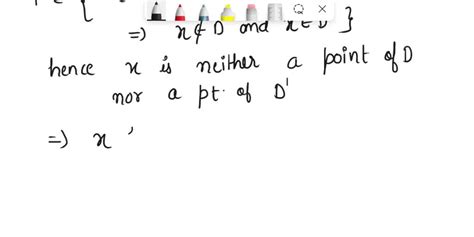 =) x ∉ D and x ∈ D }
hence x is neither a point of D
nor a pt. of D'
=) x